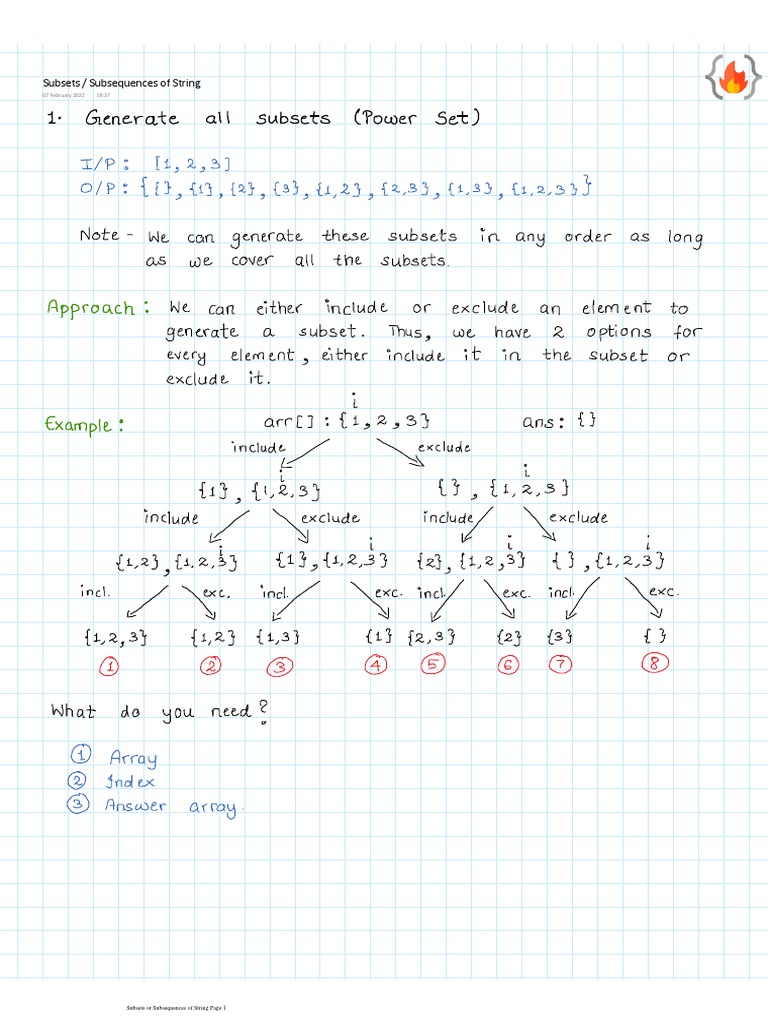 Subsets / Subsequences of String
07 February 2022 19:37
1. Generate all subsets (Power Set)
I/P : [1, 2, 3]
O/P : { {}, {1}, {2}, {3}, {1,2}, {2,3}, {1,3}, {1,2,3} }
Note - We can generate these subsets in any order as long
as we cover all the subsets.
Approach : We can either include or exclude an element to
generate a subset. Thus, we have 2 options for
every element, either include it in the subset or
exclude it.
i
Example : arr[] : {1, 2, 3} ans : {}
include exclude
i i
{1}, {1,2,3} { }, {1,2,3}
include exclude include exclude
i i i i
{1,2}, {1,2,3} {1}, {1,2,3} {2}, {1,2,3} { }, {1,2,3}
incl. exc. incl. exc. incl. exc. incl. exc.
{1,2,3} {1,2} {1,3} {1} {2,3} {2} {3} { }
1 2 3 4 5 6 7 8
What do you need?
1 Array
2 Index
3 Answer array.
Subsets or Subsequences of String Page 1